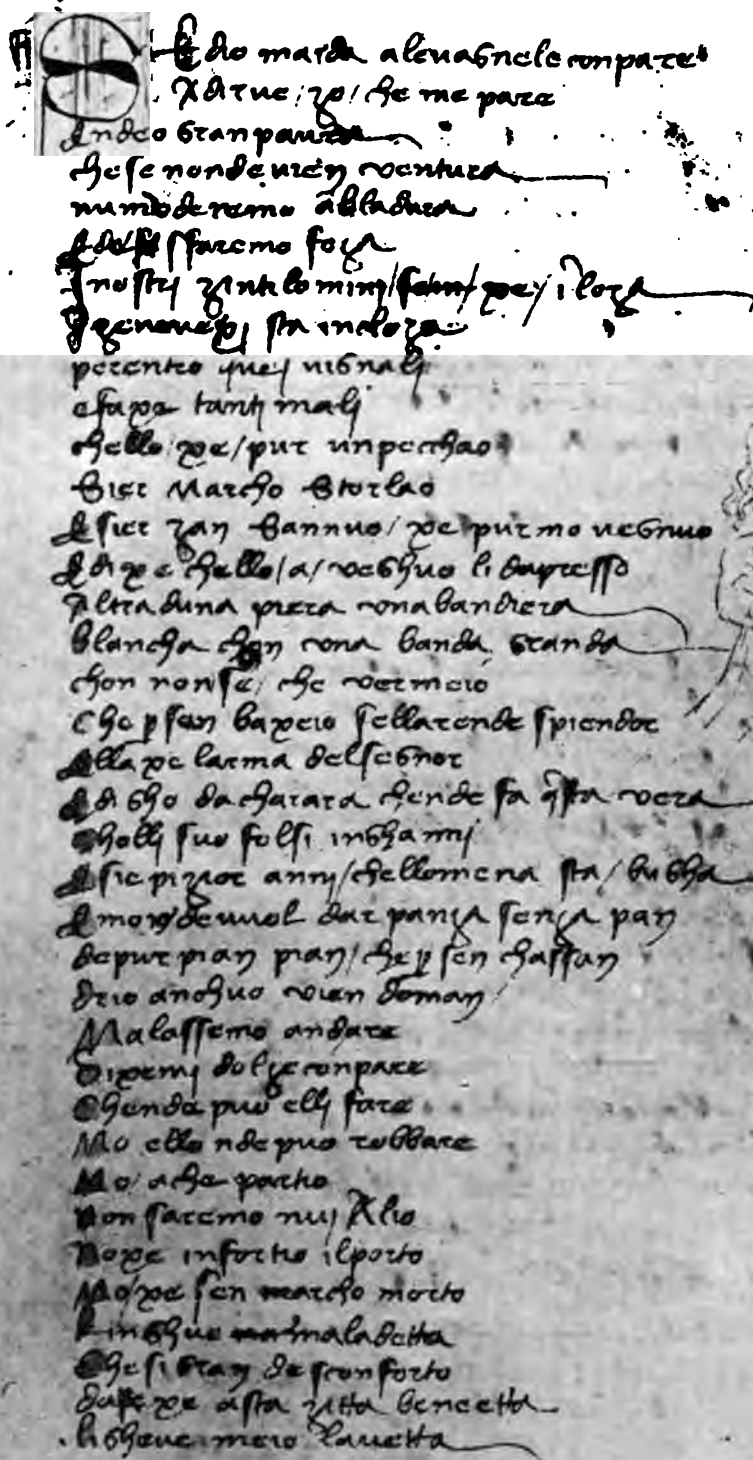 Se dio marda alevasnele conpare
A dirve zo che me pare
Andeo gran paura
che se non de vien ventura
nu mo deremo a bladura
E de ssfaremo foza
I nostri zintilomini sem xe i loza
I zenovexi sta in choza
per entro quej vignali
e fa xe tantj malj
chello xe pur un pecchao
Sier Marcho Storlao
E sier zan Bannuo xe pur mo vegnuo
E di xe chello a veghuo li da presso
Altra d una piera vona bandiera
blancha chon vona banda granda
chon non se che vermeio
Che per sen baxeio sella rende spiendor
Ella xe larma del segnor
E di gho da charara chende fa questa vera
Cholli suo folsi inghannj
E sie pizior annj chello mena sta bugha
E mo nde vuol dar panza senza pan
de pur pian pian che per sen chassan
drio anchuo vien doman
Ma lassemo andare
Dixemj dolze conpare
Chende puo ellj fare
Mo ello nde puo robbare
Mo a che partio
Non saremo nuj Alio
No xe in fortio il porto
Mo xe sen marcho morto
Lingue maladetta
Che si gran desconforto
xe asta zitta benedetta
li gheve meio lavetta